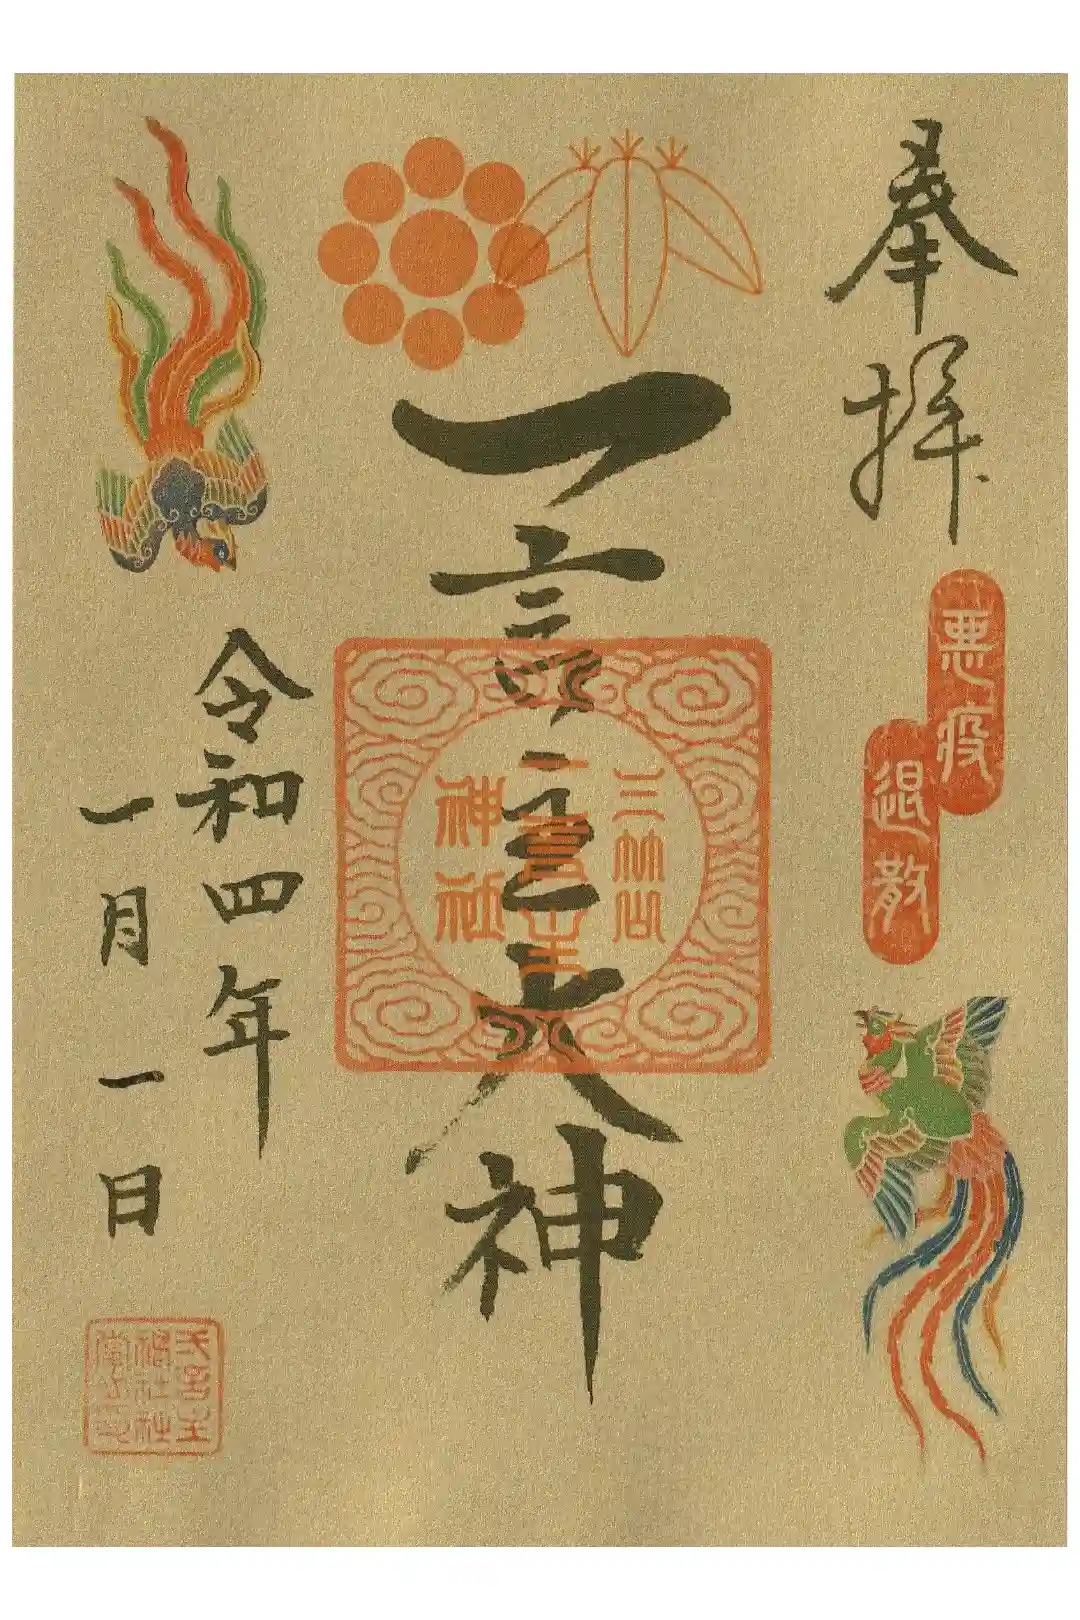 奉拝
悪疫
退散
一言主大神
三竹山
一言主
神社
令和四年
一月一日